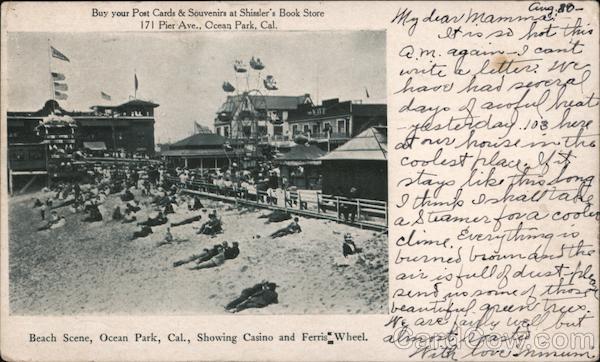 Buy your Post Cards & Souvenirs at Shissler's Book Store
171 Pier Ave., Ocean Park, Cal.
Aug. 30 -
My dear Mamma:
It is so hot this
a.m. again - I can't
write a letter. We
have had several
days of awful heat
- yesterday 103 here
at our house in the
coolest place. If it
stays like this long
I think I shall take
a Steamer for a cooler
clime. Everything is
burned brown and the
air is full of dust. please
send us some of those
beautiful green trees.
We are fairly well but
almost
With love
Beach Scene, Ocean Park, Cal., Showing Casino and Ferris Wheel.
CardCow.com